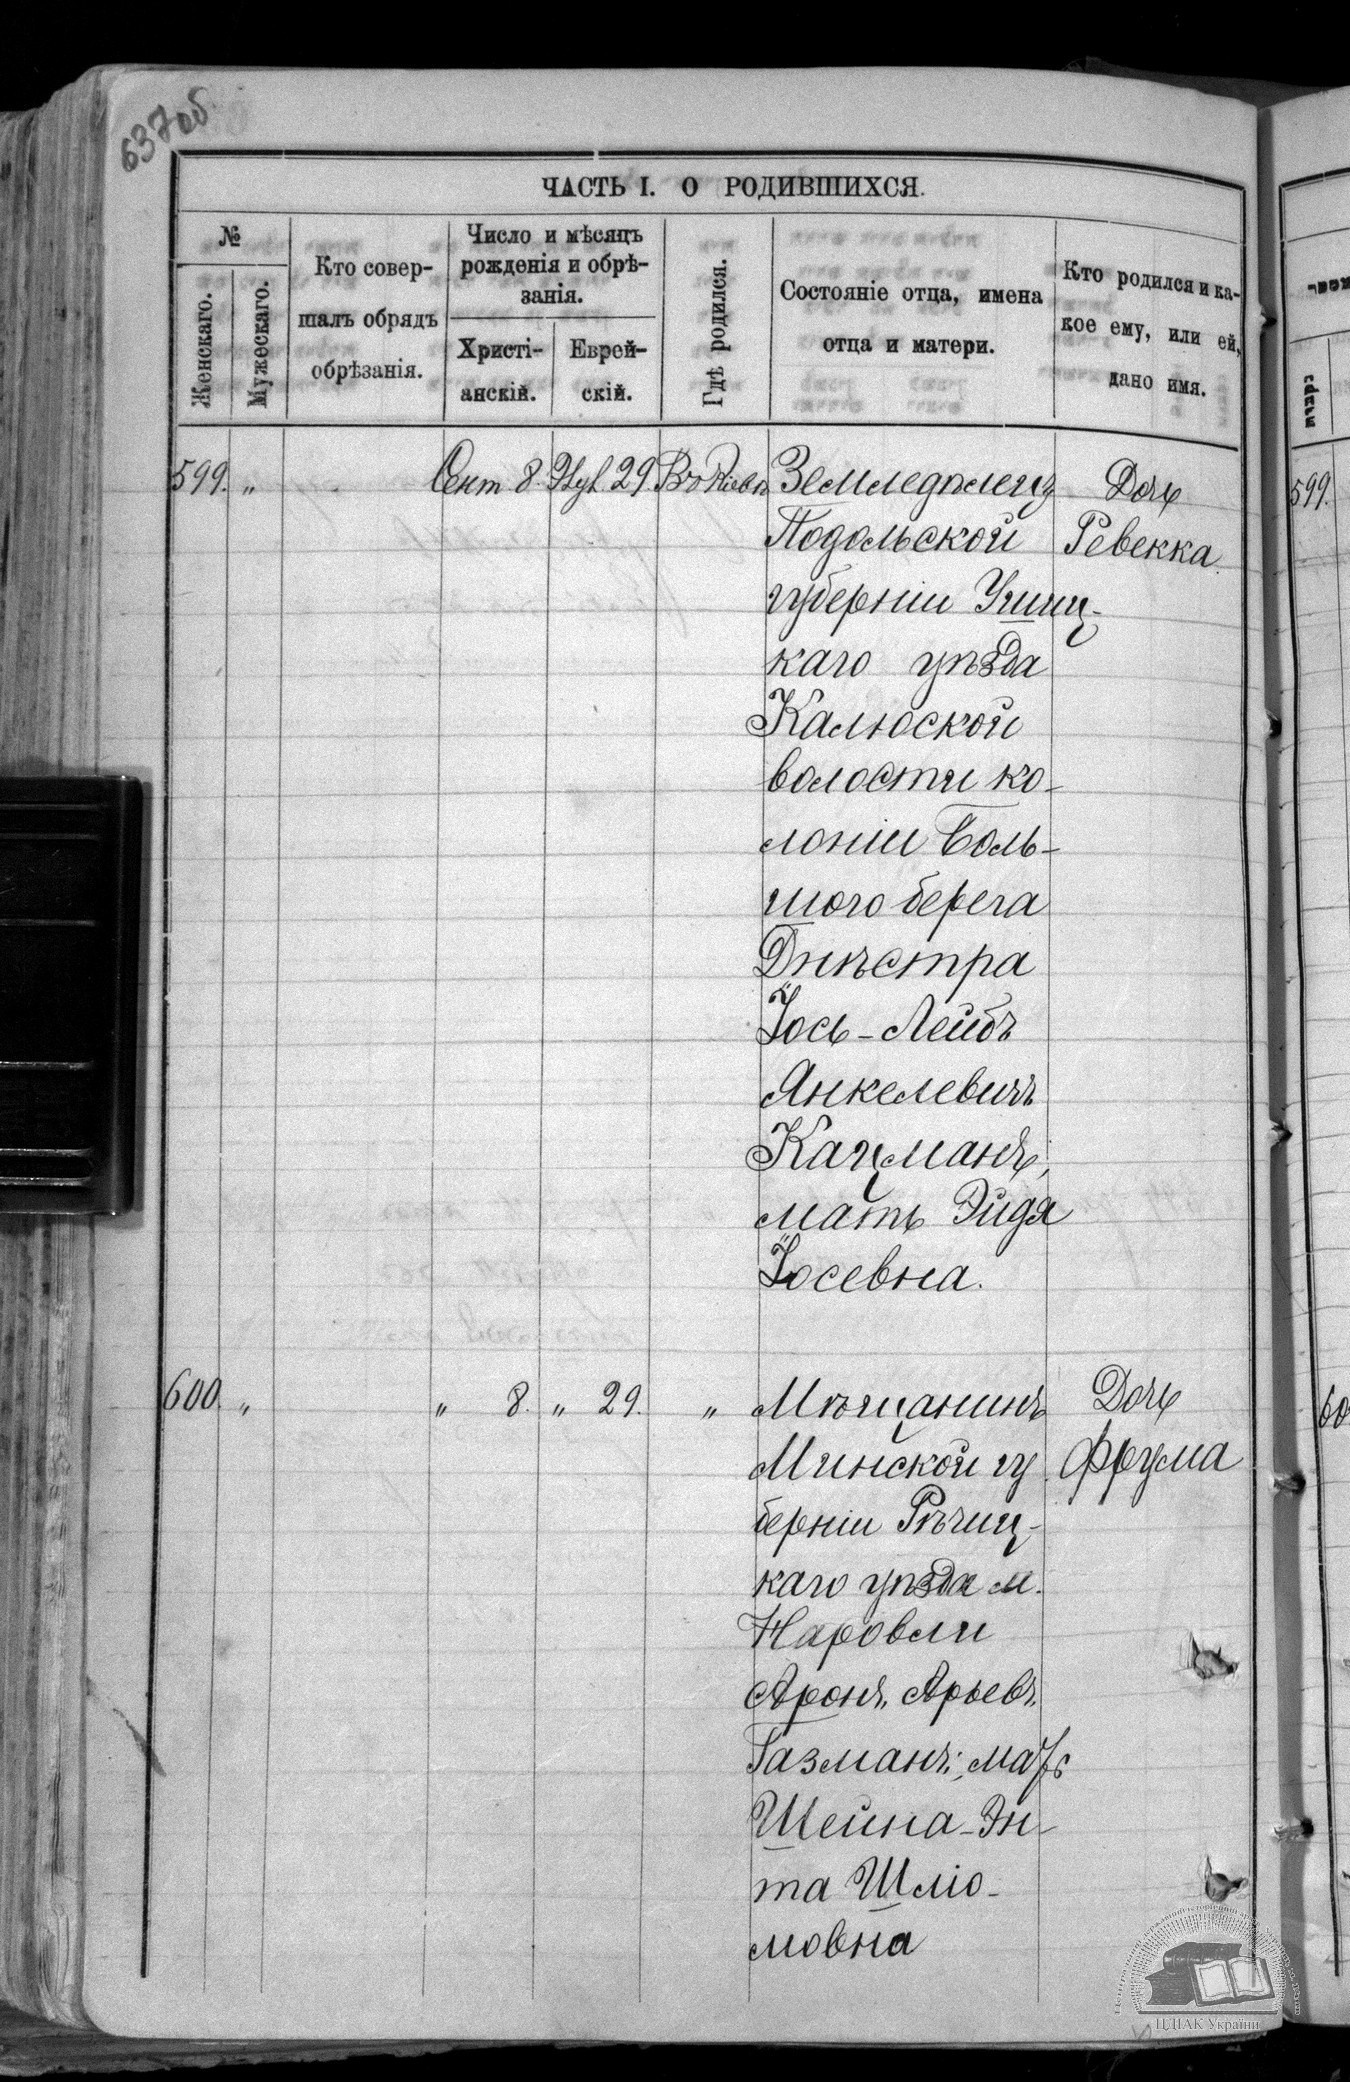 637об
ЧАСТЬ I. О РОДИВШИХСЯ.
№
Женскаго.
Мужескаго.
Кто совер-
шалъ обрядъ
обрѣзанія.
Число и мѣсяцъ
рожденія и обрѣ-
занія.
Христі-
анскій.
Еврей-
скій.
Гдѣ родился.
Состояніе отца, имена
отца и матери.
Кто родился и ка-
кое ему, или ей,
дано имя.
599. „ Сент. 8. 29. Въ Кіевѣ Земледѣлецъ Дочь
Подольской Ревекка.
губерніи Ушиц-
каго уѣзда
Калюской
волости ко-
лоніи Боль-
шого берега
Днѣстра
Іось-Лейбъ
Янкелевичъ
Кацманъ,
мать Эйдя
Іосевна.
600. „ „ 8. „ 29. „ Мѣщанинъ Дочь
Минской гу Фрума
берніи Рѣчиц-
каго уѣзда м.
Наровли
Аронъ Арьевъ
Газманъ; мать
Шейна-Эн-
та Шліо-
мовна
599.
60
ЦДІАК України